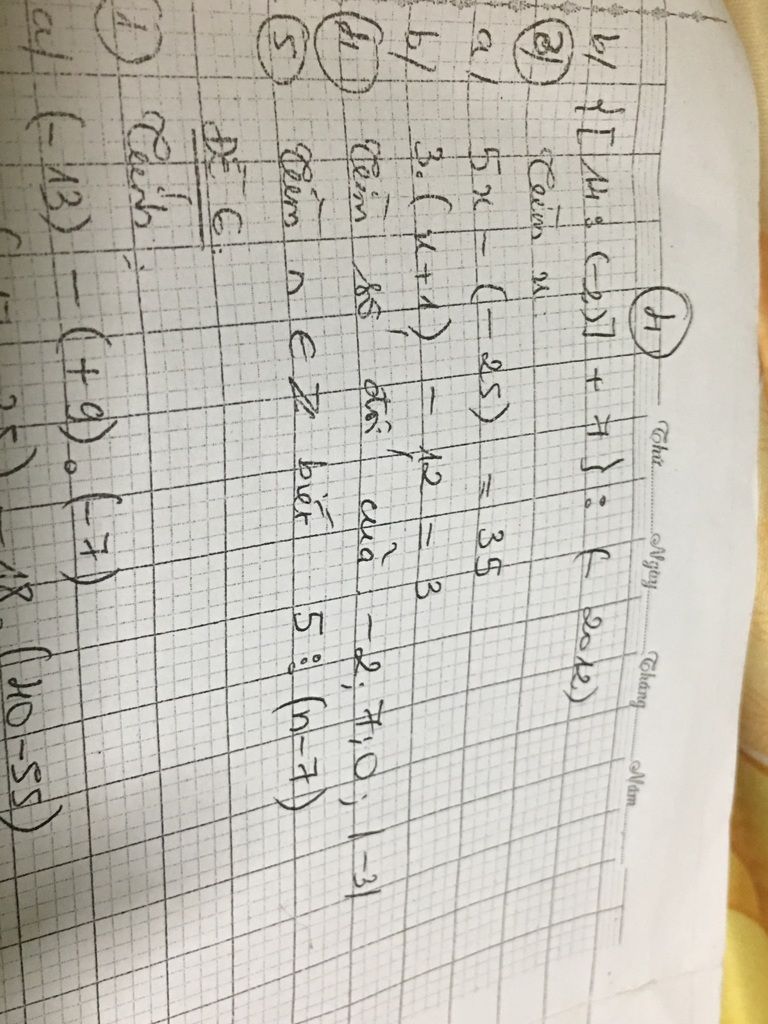 Thứ Ngày Tháng Năm
4
b/ {[14 : (-2)] + 7} : (- 2012)
3/ Tìm x
a/ 5x - (-25) = 35
b/ 3.(x+1) - 12 = 3
4 Tìm số đối của -2; 7; 0; |-3|
5 Tìm n ∈ Z biết 5 ⋮ (n-7)
Đề 6:
1 Tính:
a/ (-13) - (+9).(-7)
25) - 18.(40-55)